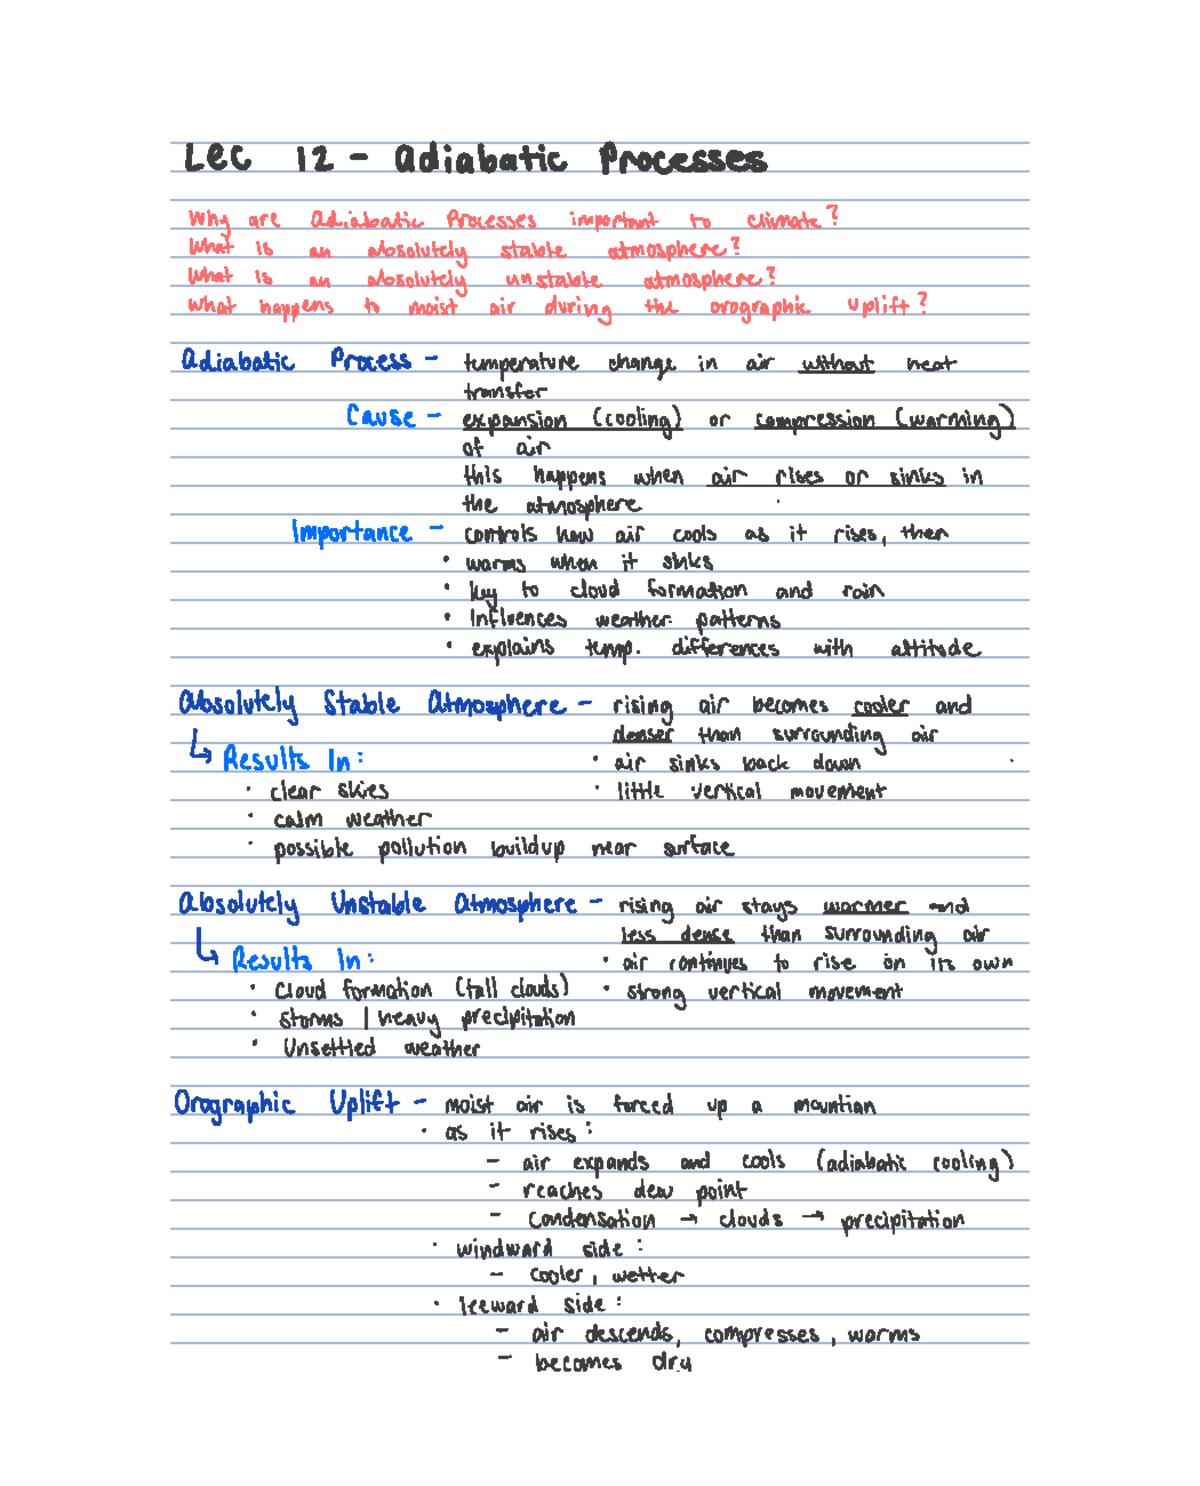 Lec 12 - Adiabatic Processes
Why are Adiabatic Processes important to climate?
What is an absolutely stable atmosphere?
What is an absolutely unstable atmosphere?
What happens to moist air during the orographic uplift?
Adiabatic Process - temperature change in air without heat
transfer
Cause - expansion (cooling) or compression (warming)
of air
this happens when air rises or sinks in
the atmosphere
Importance - controls how air cools as it rises, then
• warms when it sinks
• key to cloud formation and rain
• Influences weather patterns
• explains temp. differences with altitude
Absolutely Stable Atmosphere - rising air becomes cooler and
denser than surrounding air
↳ Results In: • air sinks back down
• clear skies • little vertical movement
• calm weather
• possible pollution buildup near surface
Absolutely Unstable Atmosphere - rising air stays warmer and
less dense than surrounding air
↳ Results In: • air continues to rise on its own
• Cloud formation (tall clouds) • strong vertical movement
• storms | heavy precipitation
• Unsettled weather
Orographic Uplift - moist air is forced up a mountian
• as it rises:
- air expands and cools (adiabatic cooling)
- reaches dew point
- Condensation → clouds → precipitation
• windward side:
- cooler, wetter
• leeward side:
- air descends, compresses, warms
- becomes dry